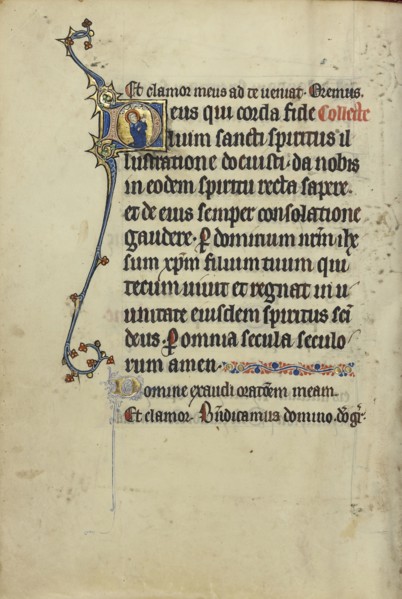 Et clamor meus ad te veniat. Oremus.
Deus qui corda fide Collecte
lium sancti spiritus il
lustratione docuisti. da nobis
in eodem spiritu recta sapere.
et de eius semper consolatione
gaudere. P dominum nrm ihe
sum xpm filium tuum qui
tecum vivit et regnat in u
unitate eiusdem spiritus sci
deus. P omnia secula seculo
rum amen.
Domine exaudi oratoem meam.
Et clamor. Bndicamus domino. do gr.